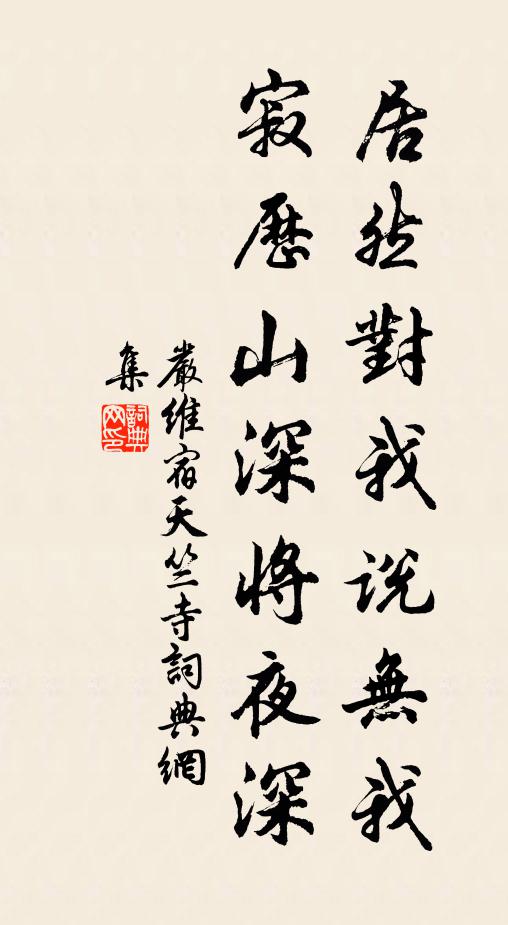 居然對我說無我
寂歷山深將夜深
嚴維宿天竺寺詞典網
集
詞典
网印